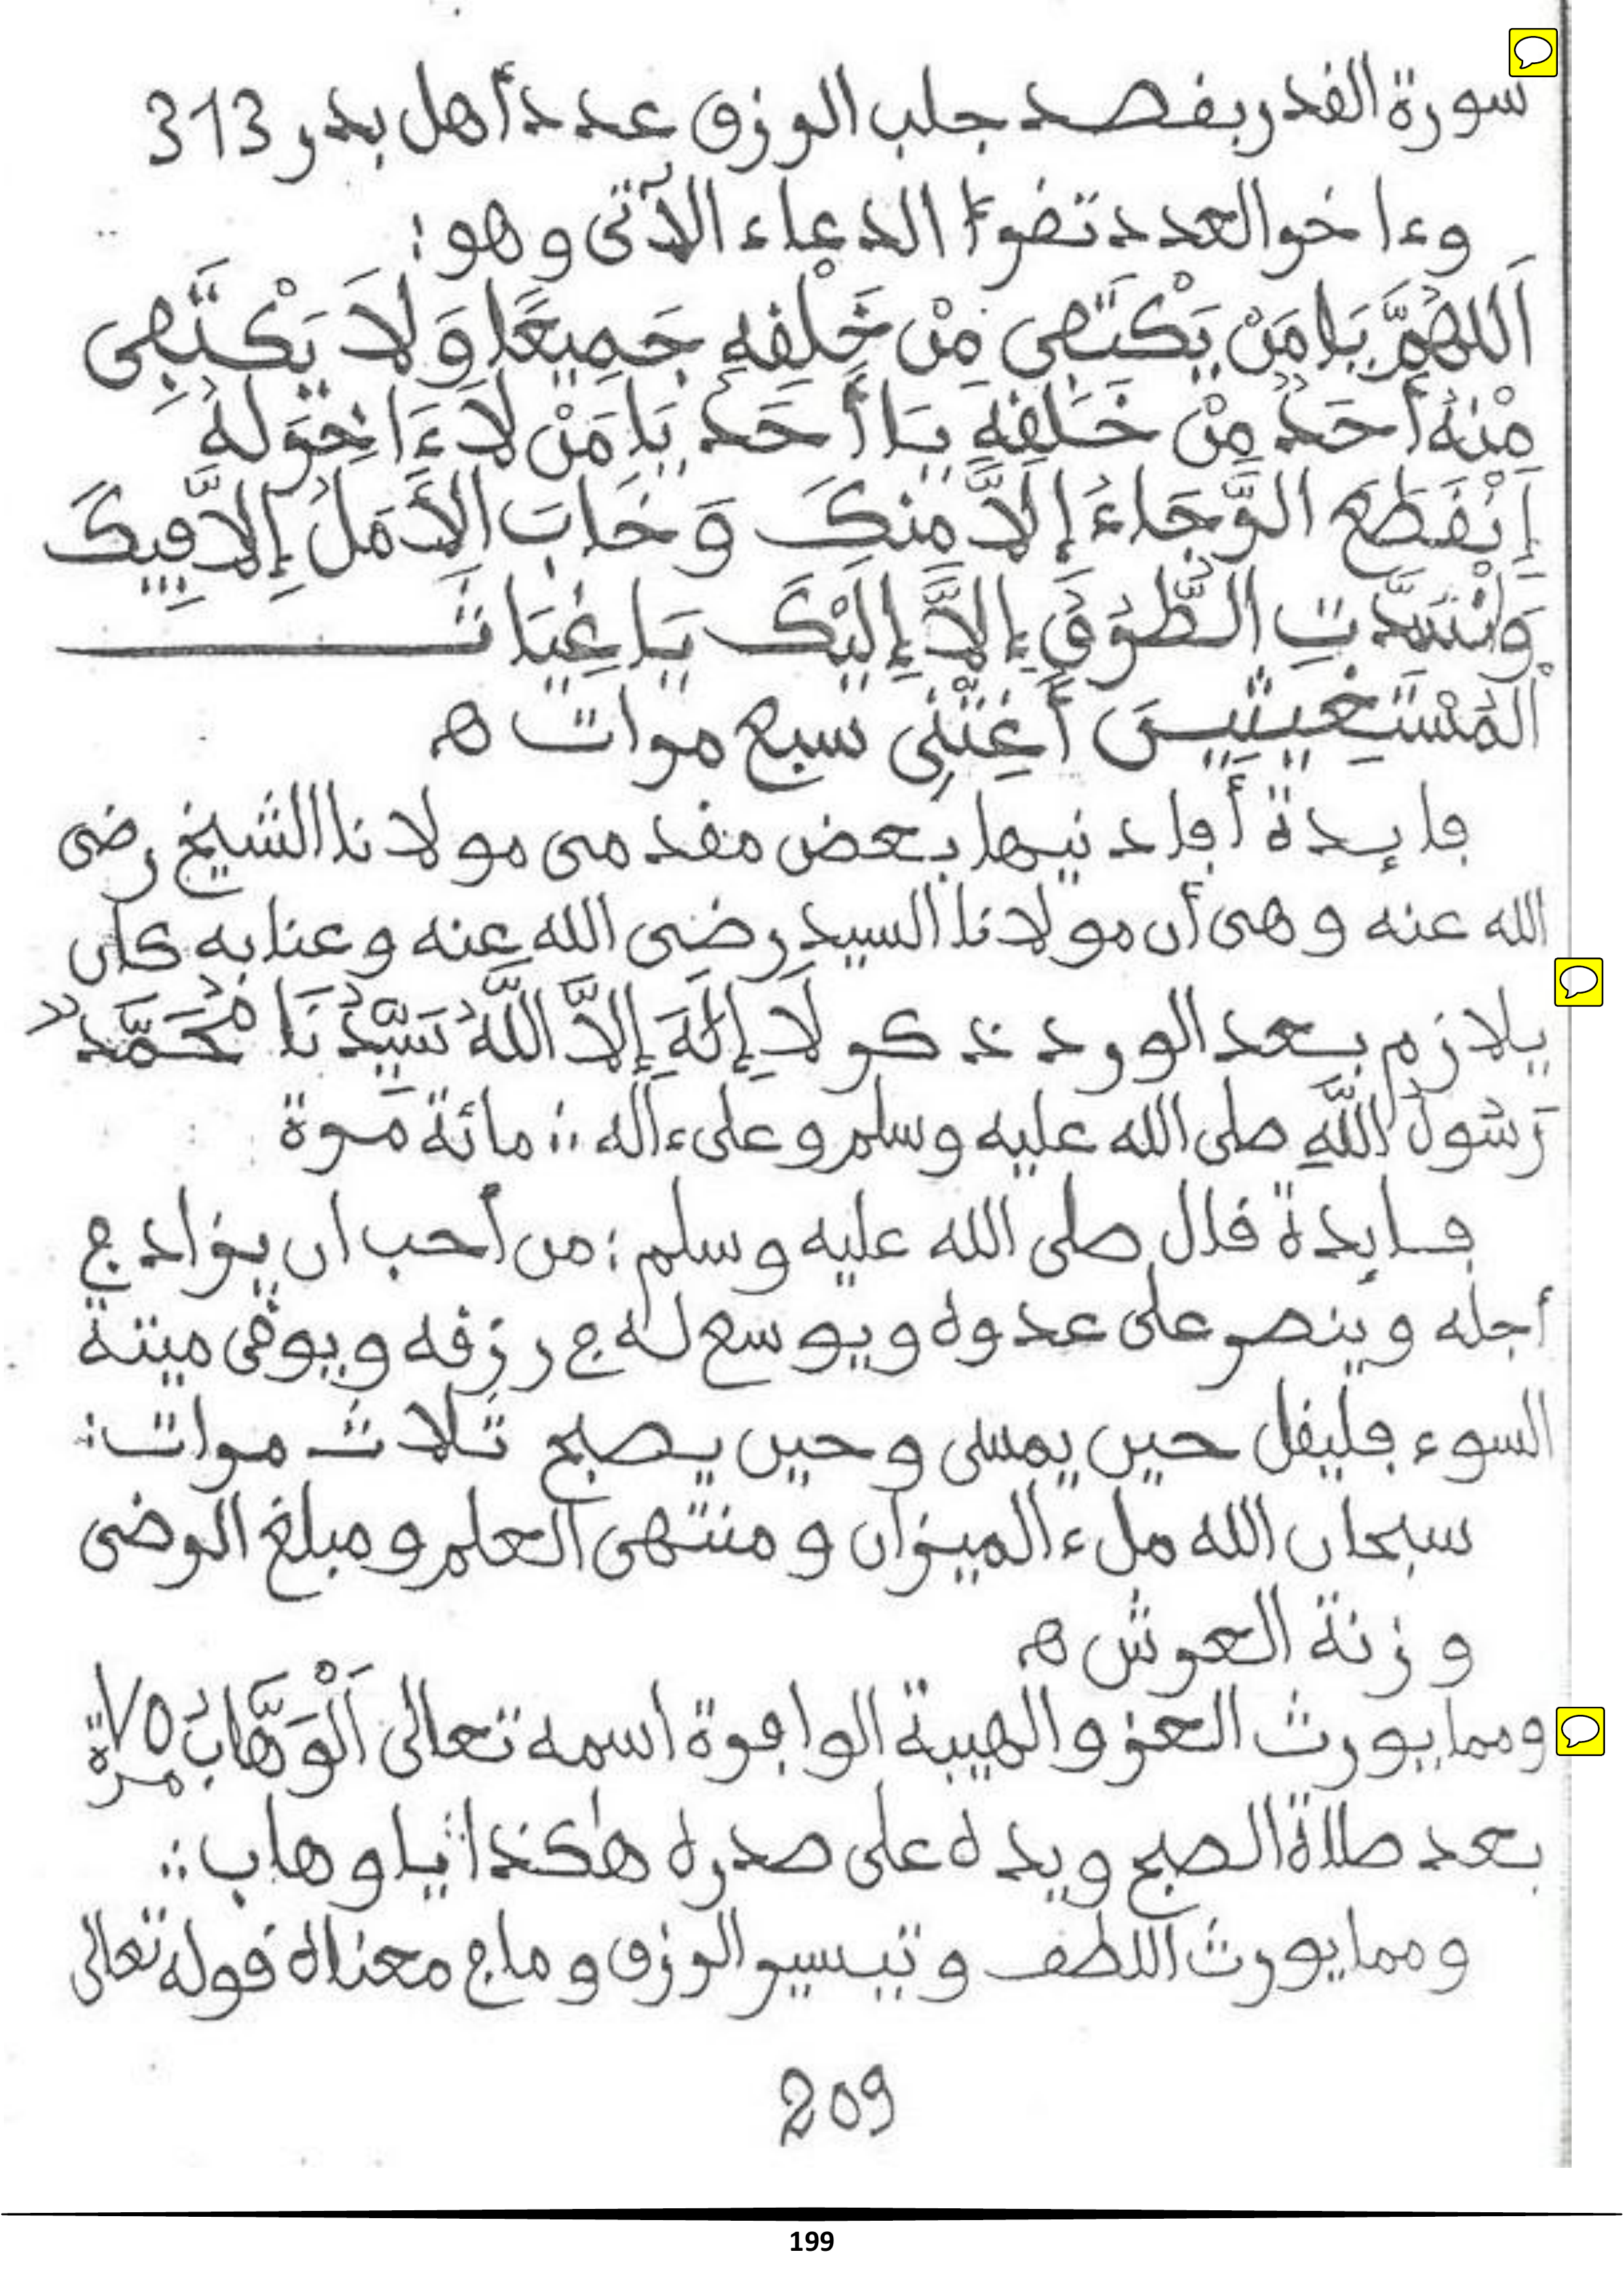 سورة القدر بقصد جلب الرزق عدد أهل بدر 313
وءاخر العدد تقرأ الدعاء الآتى وهو:
اَللَّهُمَّ يَا مَنْ يَكْتَفِى مِنْ خَلْقِهِ جَمِيعًا وَلاَ يَكْتَفِى
مِنْهُ أَحَدٌ مِنْ خَلْقِهِ يَا أَحَدُ يَا مَنْ لاَ ءَاخِرَ لَهُ
إِنْقَطَعَ الرَّجَاءُ إِلاَّ مِنْكَ وَخَابَ الأَمَلُ إِلاَّ فِيكَ
وَانْسَدَّتِ الطُّرُقُ إِلاَّ إِلَيْكَ يَا غِيَاثَ
الْمُسْتَغِيثِينَ أَغِثْنِى سبع مرات ه
فايدة أفادنيها بعض مقدمى مولانا الشيخ رضى
الله عنه وهى أن مولانا السيد رضى الله عنه وعنا به كان
يلازم بعد الورد ذكر لاَ إِلَهَ إِلاَّ اللَّهُ سَيِّدُنَا مُحَمَّدٌ
رَسُولُ اللَّهِ صلى الله عليه وسلم وعلى ءاله :: مائة مرة
فايدة قال صلى الله عليه وسلم: من أحب ان يزاد في
أجله وينصر على عدوه ويوسع له في رزقه ويوقى ميتة
السوء فليقل حين يمسى وحين يصبح ثلاث مرات:
سبحان الله ملء الميزان ومنتهى العلم ومبلغ الرضى
وزنة العرش ه
ومما يورث العز والهيبة الوافرة اسمه تعالى اَلْوَهَّابُ ٧٥ مرة
بعد صلاة الصبح ويده على صدره هٰكذا يا وهاب ::
ومما يورث اللطف وتيسير الرزق وما في معناه قوله تعالى
209
199